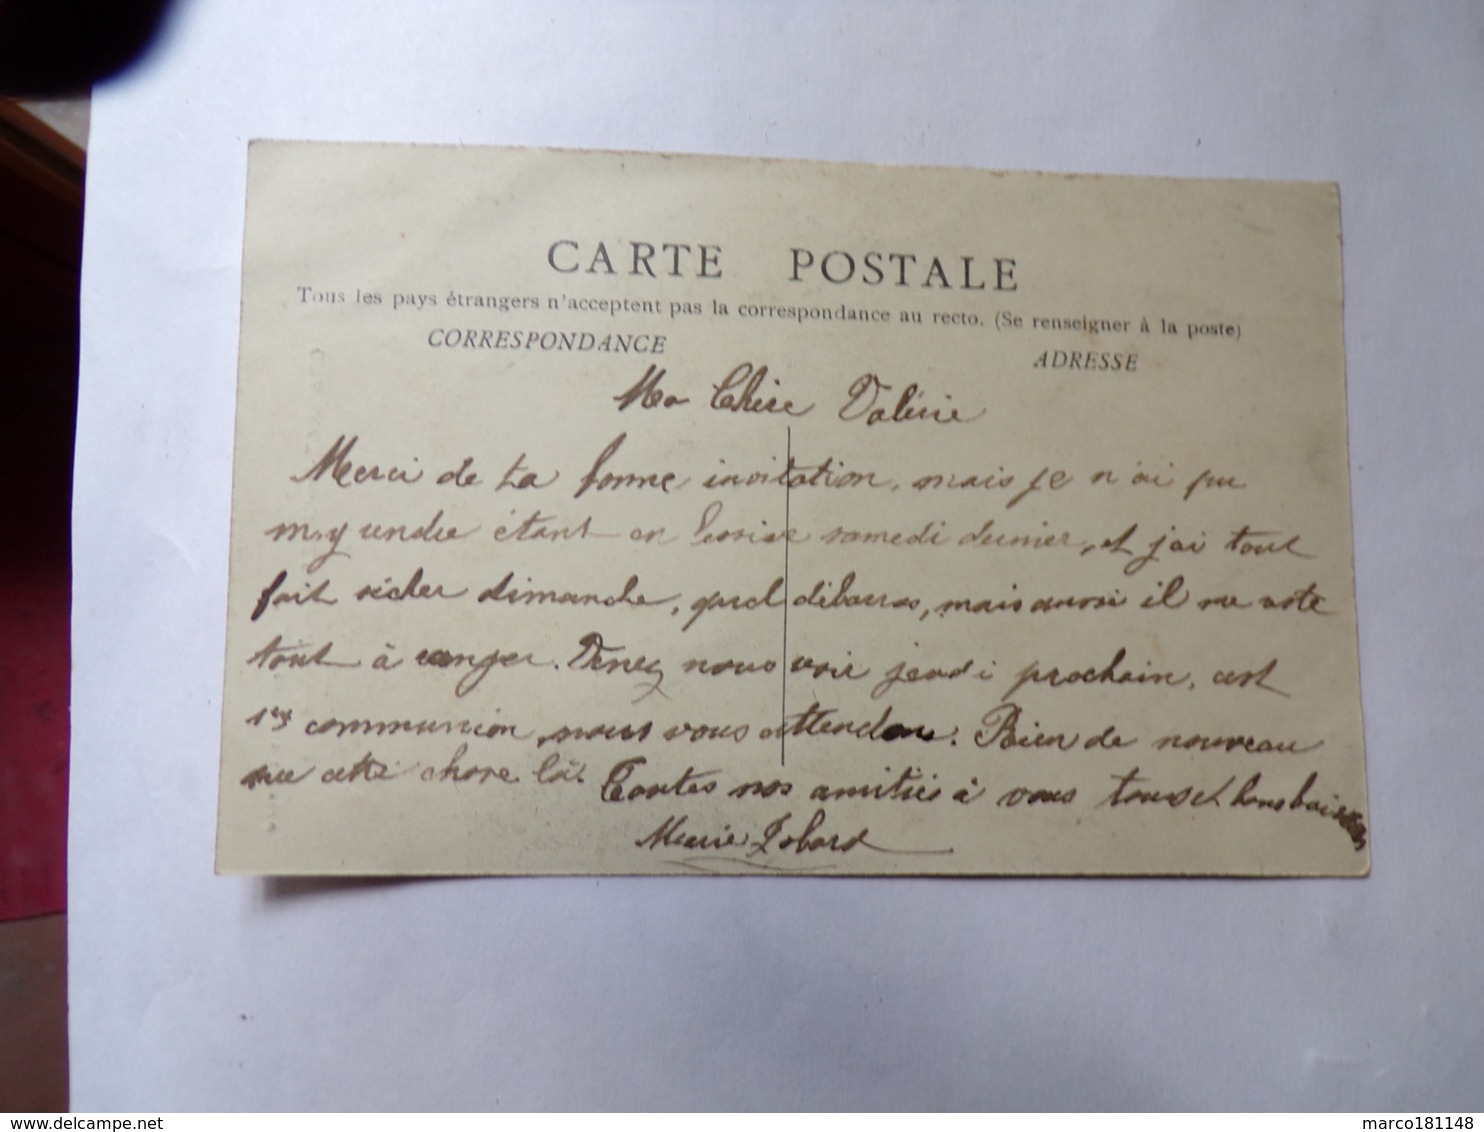 CARTE POSTALE
Tous les pays étrangers n'acceptent pas la correspondance au recto. (Se renseigner à la poste)
CORRESPONDANCE ADRESSE
Ma Chère Valérie
Merci de ta bonne invitation, mais je n'ai pu
m'y rendre étant en lessive samedi dernier, et j'ai tout
fait sécher dimanche, quel débarras, mais aussi il me reste
tout à ranger. Venez nous voir jeudi prochain, c'est
communion, nous vous attendons. Rien de nouveau
que cette chose là. Toutes nos amitiés à vous tous et bons baisers
Marie Jobard
delcampe.net
marco181148